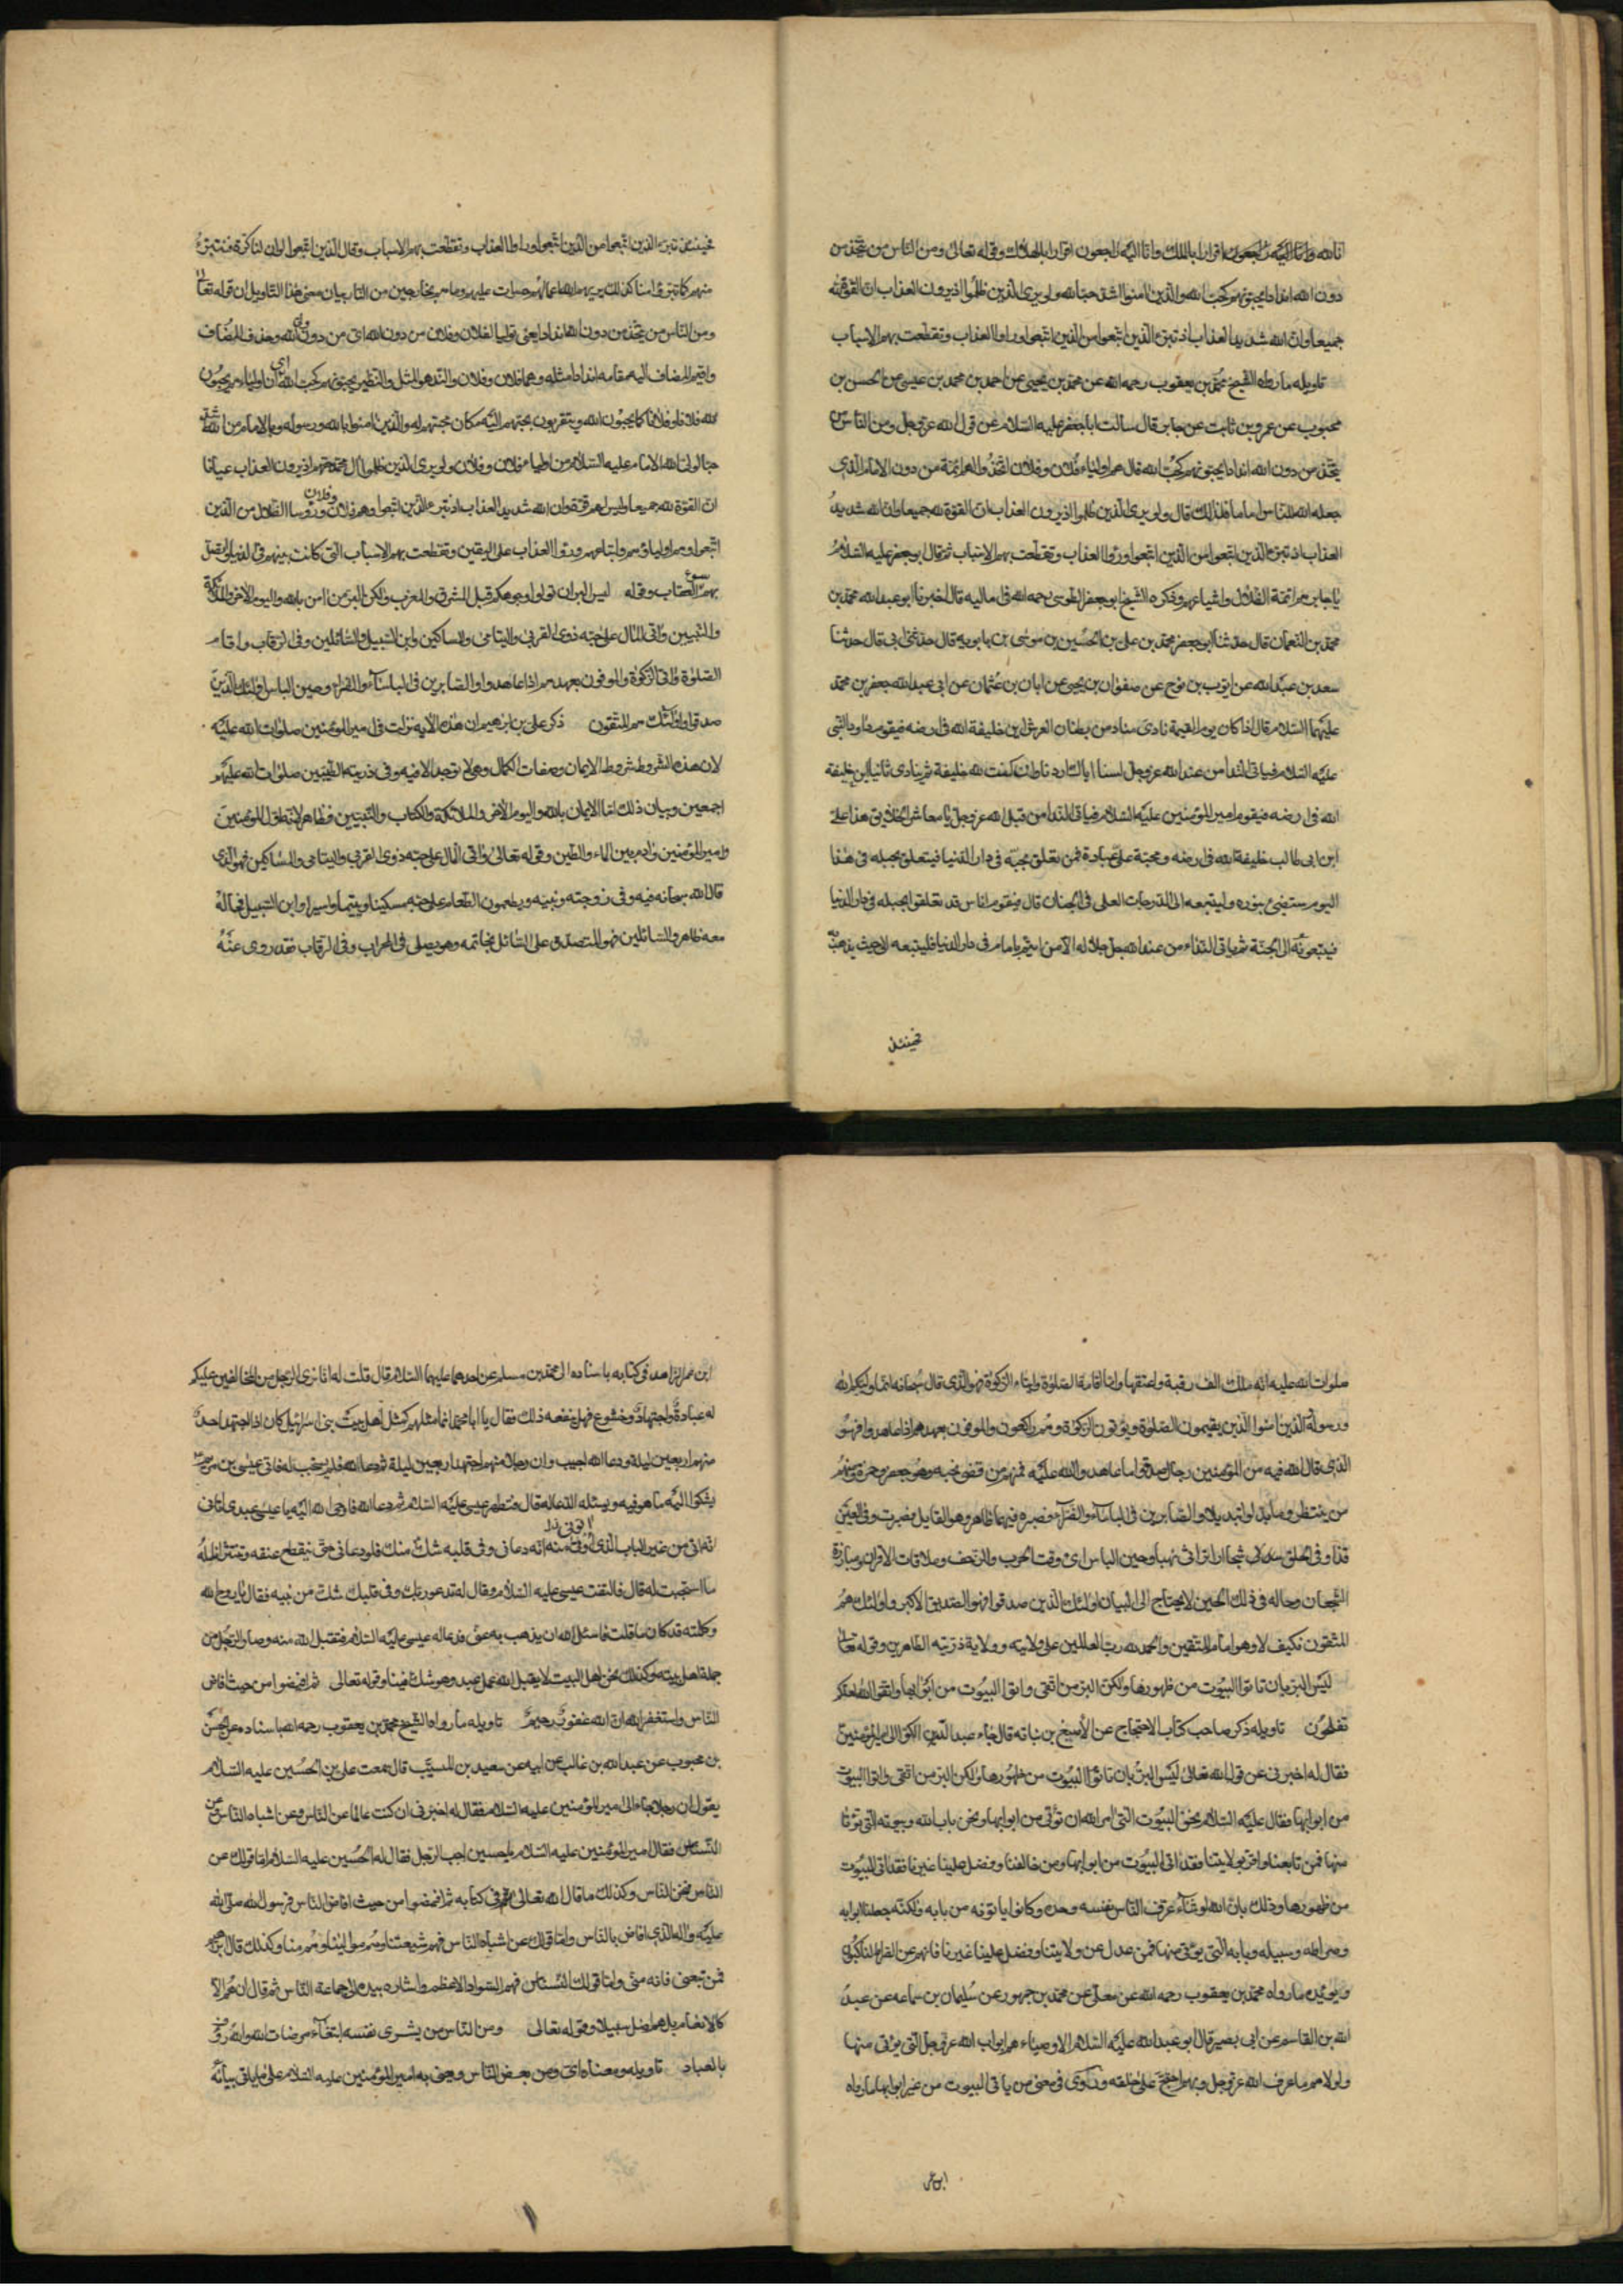 انا لله وانا اليه راجعون اقرار بالملك وانا اليه راجعون اقرار بالهلاك وقوله تعالى ومن الناس من يتخذ من
دون الله اندادا يحبونهم كحب الله والذين امنوا اشد حبا لله ولو يرى الذين ظلموا اذ يرون العذاب ان القوة لله
جميعا وان الله شديد العذاب اذ تبرء الذين اتبعوا من الذين اتبعوا وراوا العذاب وتقطعت بهم الاسباب
تاويله ما رواه الشيخ محمد بن يعقوب رحمه الله عن محمد بن يحيى عن احمد بن محمد بن عيسى عن الحسن بن
محبوب عن عمرو بن ثابت عن جابر قال سالت ابا جعفر عليه السلام عن قول الله عز وجل ومن الناس من
يتخذ من دون الله اندادا يحبونهم كحب الله قال هم اولياء فلان وفلان اتخذوهم ائمة من دون الامام الذي
جعله الله للناس اماما فلذلك قال ولو يرى الذين ظلموا اذ يرون العذاب ان القوة لله جميعا وان الله شديد
العذاب اذ تبرء الذين اتبعوا من الذين اتبعوا وراوا العذاب وتقطعت بهم الاسباب ثم قال ابو جعفر عليه السلام
يا جابر هم ائمة الضلال واشياعهم وذكره الشيخ ابو جعفر الطوسي رحمه الله في اماليه قال اخبرنا ابو عبد الله محمد بن
محمد بن النعمان قال حدثنا ابو جعفر محمد بن علي بن الحسين بن موسى بن بابويه قال حدثني ابي قال حدثنا
سعد بن عبد الله عن ايوب بن نوح عن صفوان بن يحيى عن ابان بن عثمان عن ابي عبد الله جعفر بن محمد
عليهما السلام قال اذا كان يوم القيمة نادى مناد من بطنان العرش اين خليفة الله في ارضه فيقوم داود النبي
عليه السلام فياتي الندا من عند الله عز وجل لسنا اياك اردنا وان كنت لله خليفة ثم ينادي ثانيا اين خليفة
الله في ارضه فيقوم امير المؤمنين عليه السلام فياتي الندا من قبل الله عز وجل يا معاشر الخلايق هذا علي
ابن ابي طالب خليفة الله في ارضه وحجته على عباده فمن تعلق بحبله في دار الدنيا فيتعلق بحبله في هذا
اليوم يستضيئ بنوره وليتبعه الى الدرجات العلى في الجنان قال فيقوم اناس قد تعلقوا بحبله في دار الدنيا
فيتبعونه الى الجنة ثم ياتي النداء من عند الله جل جلاله الا من ائتم بامام في دار الدنيا فليتبعه الى حيث يذهب به
فحينئذ
فحينئذ تبرء الذين اتبعوا من الذين اتبعوا وراوا العذاب وتقطعت بهم الاسباب وقال الذين اتبعوا لو ان لنا كرة فنتبرء
منهم كما تبرؤا منا كذلك يريهم الله اعمالهم حسرات عليهم وما هم بخارجين من النار بيان معنى هذا التاويل ان قوله تعالى
ومن الناس من يتخذ من دون الله اندادا يعني توليا لفلان وفلان من دون الله اي من دون ولي الله وحذف المضاف
واقيم المضاف اليه مقامه اندادا مثله وهما فلان وفلان والند هو المثل والنظير يحبونهم كحب الله اي ان اولياءهم يحبون
فلانا وفلانا كما يحبون الله ويتقربون بحبهم اليه مكان محبتهم له والذين امنوا بالله ورسوله وبالامام من الله اشد
حبا لولي الله الامام عليه السلام من اولياء فلان وفلان ولو يرى الذين ظلموا ال محمد حقهم اذ يرون العذاب عيانا
ان القوة لله جميعا وليس لهم قوة وان الله شديد العذاب اذ تبرء الذين اتبعوا وهم فلان وفلان ورؤسا الضلال من الذين
اتبعوا وهم اولياؤهم واتباعهم وراوا العذاب على اليقين وتقطعت بهم الاسباب التي كانت بينهم في الدنيا
بهم سوء العقاب وقوله ليس البر ان تولوا وجوهكم قبل المشرق والمغرب ولكن البر من امن بالله واليوم الاخر والملائكة
والنبيين واتى المال على حبه ذوي القربى واليتامى والمساكين وابن السبيل والسائلين وفي الرقاب واقام
الصلوة واتى الزكوة والموفون بعهدهم اذا عاهدوا والصابرين في الباساء والضراء وحين الباس اولئك الذين
صدقوا واولئك هم المتقون ذكر علي بن ابرهيم ان هذه الاية نزلت في امير المؤمنين صلوات الله عليه
لان هذه الشروط شروط الايمان وصفات الكمال وهي لا توجد الا فيه وفي ذريته الطيبين صلوات الله عليهم
اجمعين وبيان ذلك اما الايمان بالله واليوم الاخر والملائكة والكتاب والنبيين فظاهر
وامير المؤمنين وادم بين الماء والطين وقوله تعالى واتى المال على حبه ذوي القربى واليتامى والمساكين فهو الذي
قال الله سبحانه فيه وفي زوجته وبنيه ويطعمون الطعام على حبه مسكينا ويتيما واسيرا وابن السبيل فحاله
معه ظاهر والسائلين فهو المتصدق على السائل بخاتمه وهو يصلي في المحراب وفي الرقاب فقد روى عنه
صلوات الله عليه انه ملك الف رقبة واعتقها واما اقامة الصلوة وايتاء الزكوة فهو الذي قال سبحانه انما وليكم الله
ورسوله والذين امنوا الذين يقيمون الصلوة ويؤتون الزكوة وهم راكعون والموفون بعهدهم اذا عاهدوا فهو
الذي قال الله فيه من المؤمنين رجال صدقوا ما عاهدوا الله عليه فمنهم من قضى نحبه وهو جعفر وحمزة ومنهم
من ينتظر وما بدلوا تبديلا والصابرين في الباساء والضراء فصبره فيهما ظاهر وهو القايل صبرت وفي العين
قذا وفي الحلق شجا ارى تراثي نهبا وحين الباس اي وقت الحرب والزحف وملاقات الاقران ومبارزة
الشجعان وحاله في ذلك الحين لا يحتاج الى البيان اولئك الذين صدقوا فهو الصديق الاكبر واولئك هم
المتقون فكيف لا وهو امام المتقين والحمد لله رب العالمين على ولايته وولاية ذريته الطاهرين وقوله تعالى
ليس البر بان تاتوا البيوت من ظهورها ولكن البر من اتقى واتوا البيوت من ابوابها واتقوا الله لعلكم
تفلحون تاويله ذكر صاحب كتاب الاحتجاج عن الاصبغ بن نباته قال جاء عبد الله بن الكوا الى امير المؤمنين
فقال له اخبرني عن قول الله تعالى ليس البر بان تاتوا البيوت من ظهورها ولكن البر من اتقى واتوا البيوت
من ابوابها فقال عليه السلام نحن البيوت التي امر الله ان تؤتى من ابوابها ونحن باب الله وبيوته التي تؤتا
منها فمن تابعنا واقر بولايتنا فقد اتى البيوت من ابوابها ومن خالفنا وفضل علينا غيرنا فقد اتى البيوت
من ظهورها وذلك بان الله لو شاء عرف الناس نفسه وحده وكانوا ياتونه من بابه ولكنه جعلنا ابوابه
وصراطه وسبيله وبابه التي يؤتى منها فمن عدل عن ولايتنا وفضل علينا غيرنا فانهم عن الصراط لناكبون
ويؤيده ما رواه محمد بن يعقوب رحمه الله عن معلى عن محمد بن جمهور عن سليمان بن سماعه عن عبد
الله بن القاسم عن ابي بصير قال ابو عبد الله عليه السلام الاوصياء هم ابواب الله عز وجل التي يؤتى منها
ولولاهم ما عرف الله عز وجل وبهم احتج على خلقه وروى في معنى من ياتي البيوت من غير ابوابها ما رواه
ابن عمر
ابن عمر الزاهد في كتابه باسناده الى محمد بن مسلم عن احدهما عليهما السلام قال قلت له انا نرى الرجل من المخالفين عليكم
له عبادة واجتهاد وخشوع فهل ينفعه ذلك فقال يا ابا محمد انما مثلهم كمثل اهل بيت بني اسرائيل كان اذا اجتهد احد
منهم اربعين ليلة ودعا الله اجيب وان رجلا منهم اجتهد اربعين ليلة ثم دعا الله فلم يستجب له فاتى عيسى بن مريم
يشكوا اليه ما هو فيه ويسئله الدعا له قال فتطهر عيسى عليه السلام ثم دعا الله فاوحى الله اليه يا عيسى عبدي اتاني
من غير الباب الذي اوتى منه انه دعاني وفي قلبه شك منك فلو دعاني حتى ينقطع عنقه وتنتثر انامله
ما استجبت له قال فالتفت عيسى عليه السلام وقال له تدعو ربك وفي قلبك شك من نبيه فقال يا روح الله
وكلمته قد كان ما قلت فاسئل الله ان يذهب به عني فدعا له عيسى عليه السلام فتقبل الله منه وصار الرجل من
جملة اهل بيته وكذلك نحن اهل البيت لا يقبل الله عمل عبد وهو شاك فينا وقوله تعالى ثم افيضوا من حيث افاض
الناس واستغفروا الله ان الله غفور رحيم تاويله ما رواه الشيخ محمد بن يعقوب رحمه الله باسناده عن الحسن
بن محبوب عن عبد الله بن غالب عن ابيه عن سعيد بن المسيب قال سمعت علي بن الحسين عليه السلام
يقول ان رجلا جاء الى امير المؤمنين عليه السلام فقال له اخبرني ان كنت عالما عن الناس وعن اشباه الناس وعن
النسناس فقال امير المؤمنين عليه السلام يا حسين اجب الرجل فقال له الحسين عليه السلام اما قولك عن
الناس فنحن الناس وكذلك ما قال الله تعالى في كتابه ثم افيضوا من حيث افاض الناس فرسول الله صلى الله
عليه واله الذي افاض بالناس واما قولك عن اشباه الناس فهم شيعتنا وهم موالينا وهم منا وكذلك قال ابرهيم
فمن تبعني فانه مني واما قولك النسناس فهم السواد الاعظم واشار بيده الى جماعة الناس ثم قال ان هم الا
كالانعام بل هم اضل سبيلا وقوله تعالى ومن الناس من يشرى نفسه ابتغاء مرضات الله والله رؤف
بالعباد تاويله ومعناه اي ومن بعض الناس ويعني به امير المؤمنين عليه السلام على ما ياتي بيانه